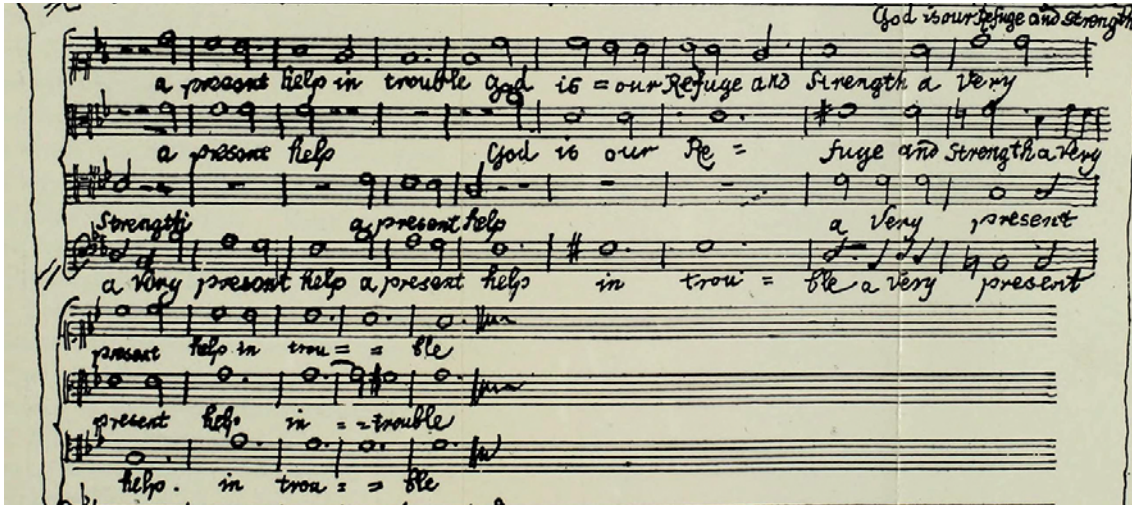 God is our Refuge and Strength
a present help in trouble God is = our Refuge and Strength a Very
a present help God is our Re = fuge and Strength a Very
Strength a present help a Very present
a Very present help a present help in trou = ble a Very present
present help in trou = = ble
present help in = = trouble
help. in trou = = ble